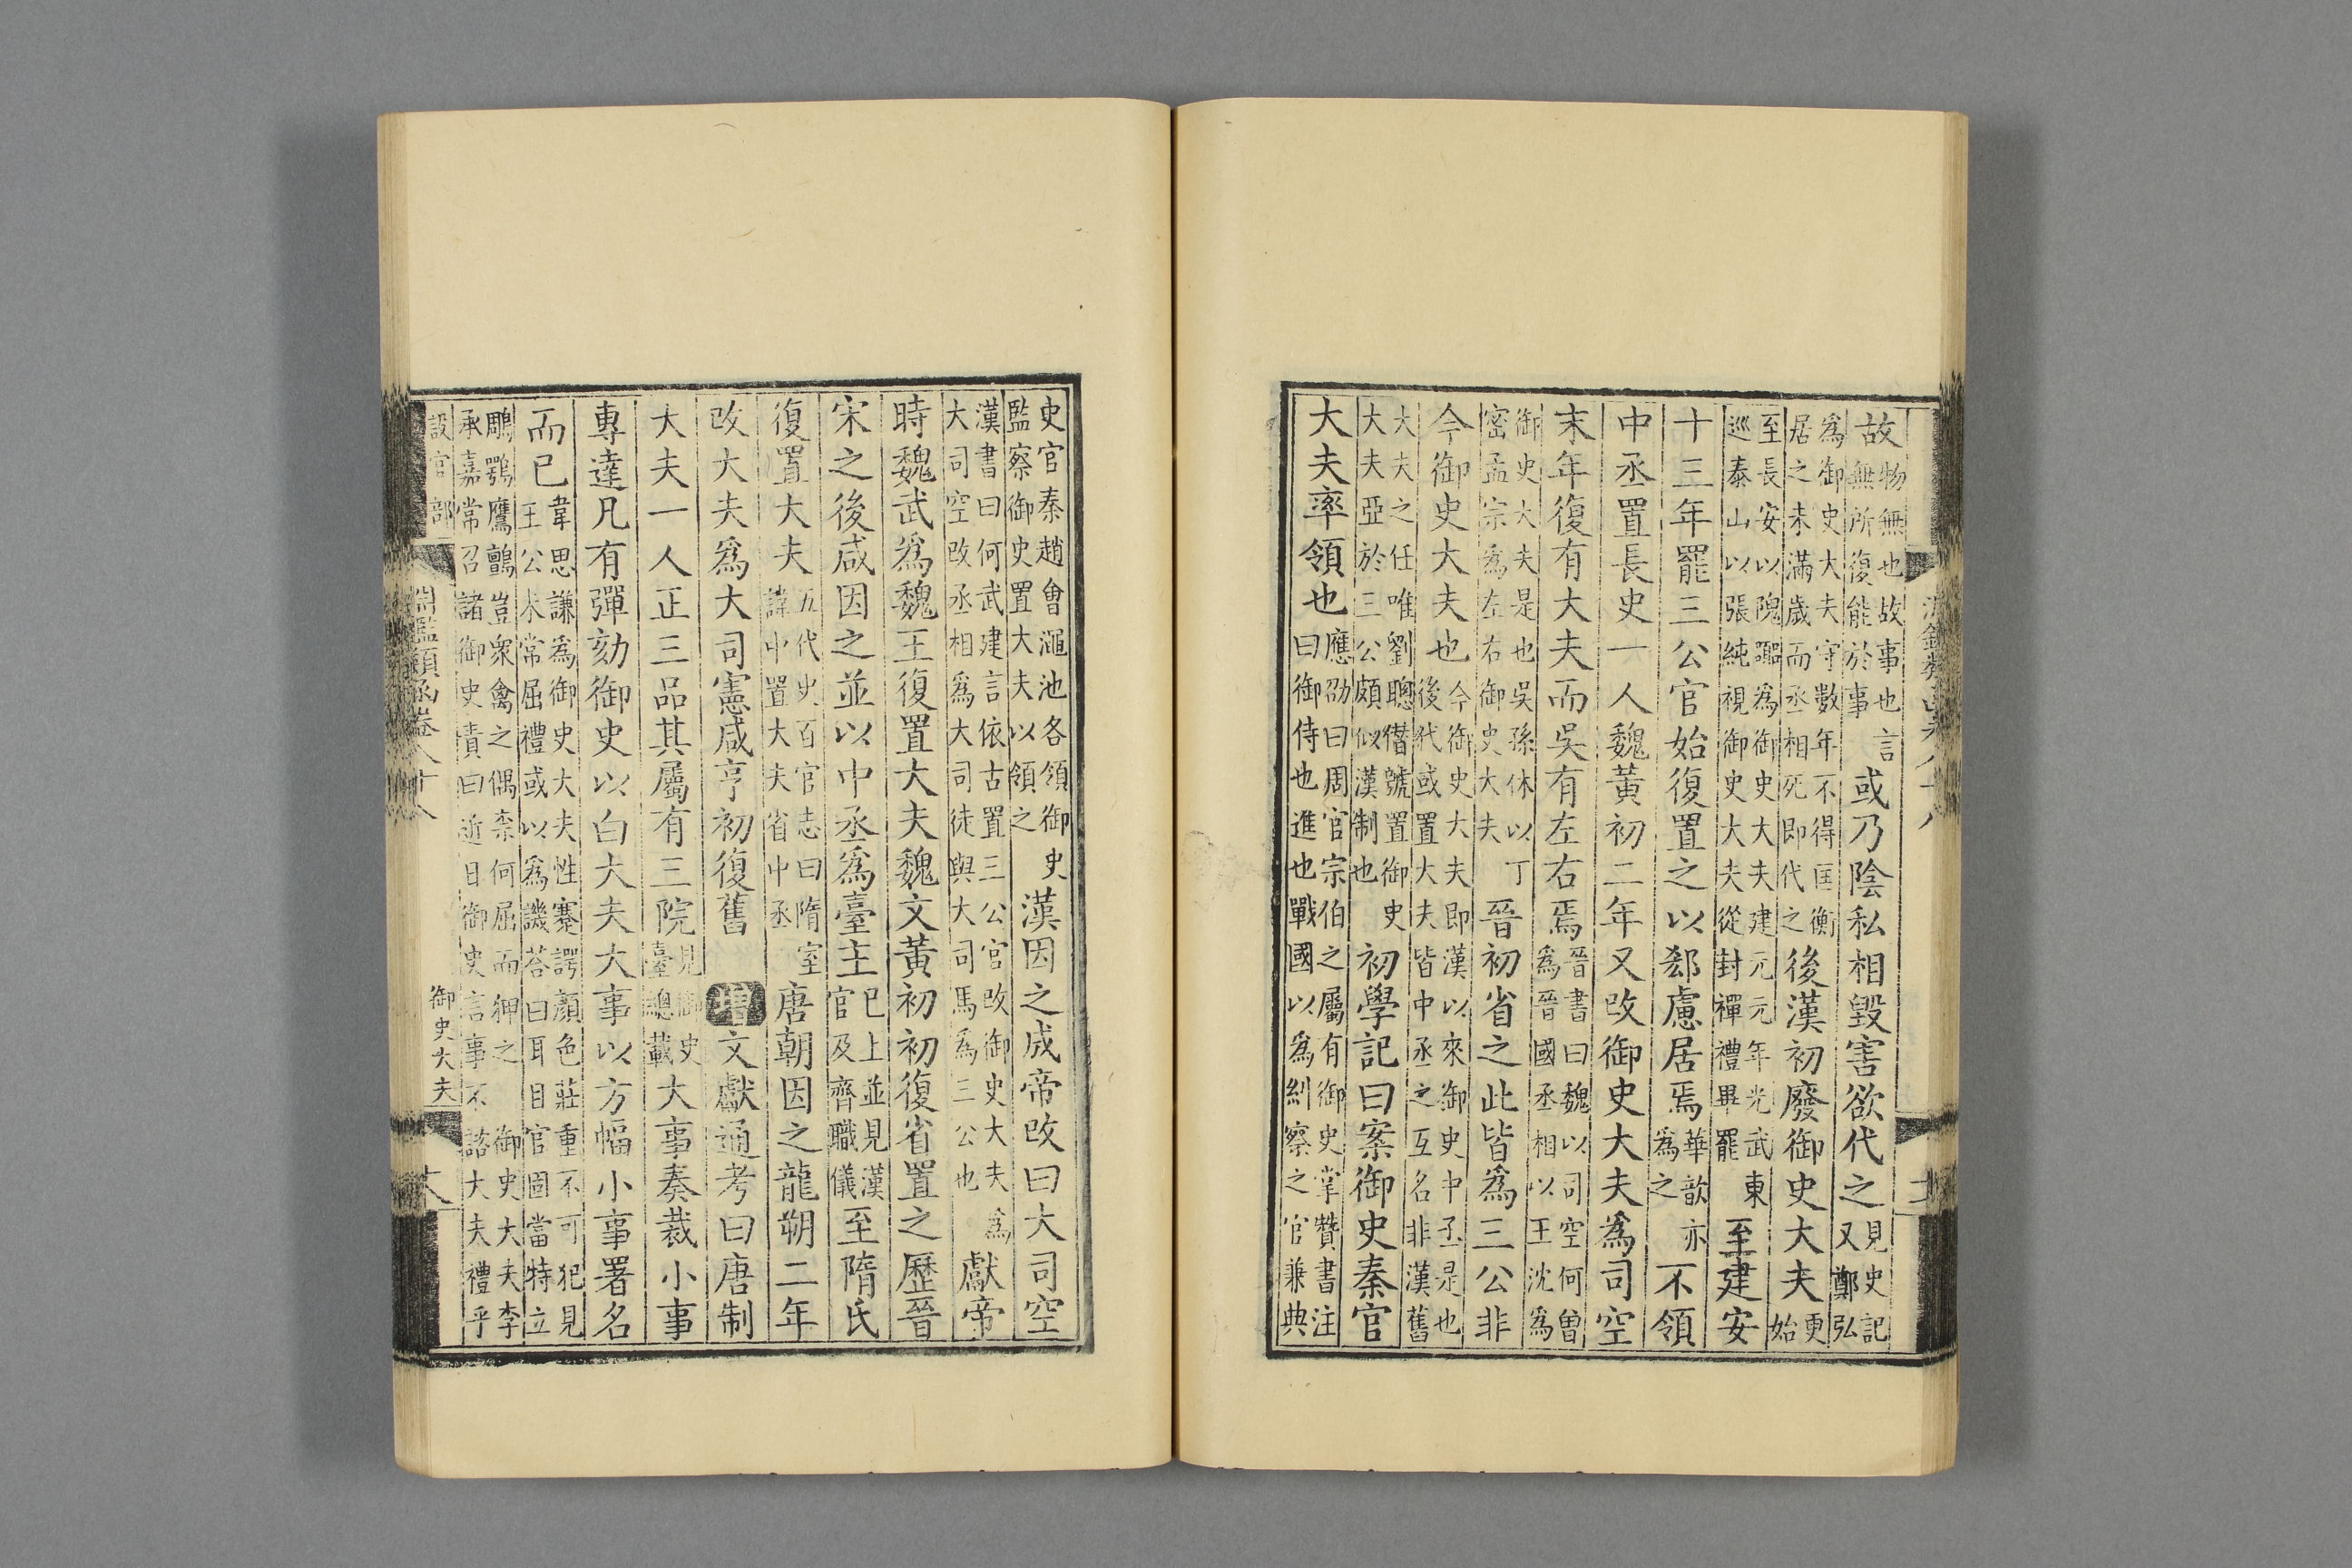 故物無也故事也言無所復能於事或乃陰私相毀害欲代之見史記又鄭弘
爲御史大夫守數年不得匡衡居之未滿歲而丞相死即代之後漢初廢御史大夫更始
至長安以隗囂爲御史大夫建元元年光武東巡泰山以張純視御史大夫從封禪禮畢罷至建安
十三年罷三公官始復置之以郄慮居焉華歆亦爲之不領
中丞置長史一人魏黃初二年又改御史大夫爲司空
末年復有大夫而吳有左右焉晉書曰魏以司空何曾爲晉國丞相以王沈爲
御史大夫是也吳孫休以丁密孟宗爲左右御史大夫晉初省之此皆爲三公非
今御史大夫也今御史大夫即漢以來御史中丞是也後代或置大夫皆中丞之互名非漢舊
大夫之任唯劉聰僭號置御史大夫亞於三公頗似漢制也初學記曰案御史秦官
大夫率領也應劭曰周官宗伯之屬有御史掌贊書注曰御侍也進也戰國以爲糾察之官兼典
史官秦趙會澠池各領御史監察御史置大夫以領之漢因之成帝改曰大司空
漢書曰何武建言依古置三公官改御史大夫爲大司空改丞相爲大司徒與大司馬爲三公也獻帝
時魏武爲魏王復置大夫魏文黃初初復省置之歷晉
宋之後咸因之並以中丞爲臺主已上並見漢官及齊職儀至隋氏
復置大夫五代史百官志曰隋室諱中置大夫省中丞唐朝因之龍朔二年
改大夫爲大司憲咸亨初復舊增文獻通考曰唐制
大夫一人正三品其屬有三院見御史臺總載大事奏裁小事
專達凡有彈劾御史以白大夫大事以方幅小事署名
而已韋思謙爲御史大夫性蹇諤顏色莊重不可犯見王公未常屈禮或以爲譏荅曰耳目官固當特立
鵰鶚鷹鸇豈衆禽之偶柰何屈而狎之御史大夫李承嘉常召諸御史責曰近日御史言事不諮大夫禮乎
設官部
淵鑑類函卷八十八
御史大夫